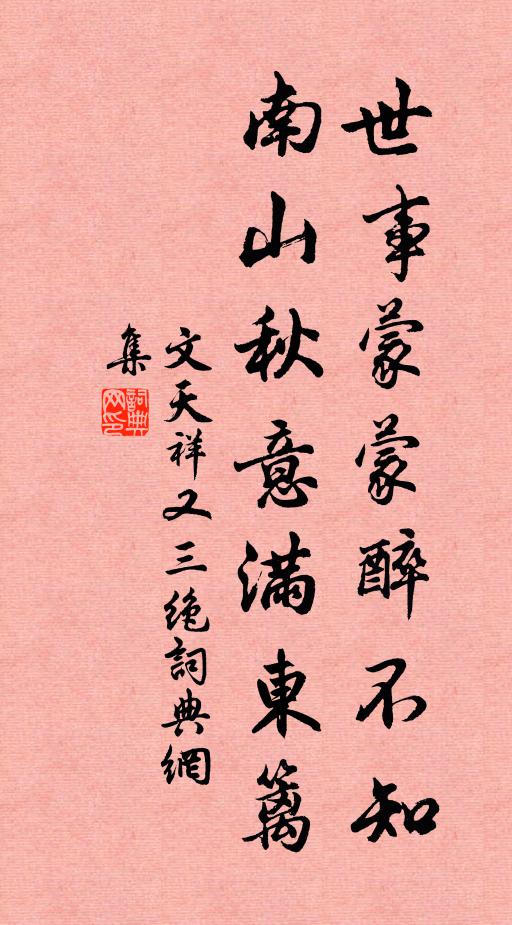 世事蒙蒙醉不知
南山秋意滿東篱
文天祥又三绝詞典網
集
詞典
网印